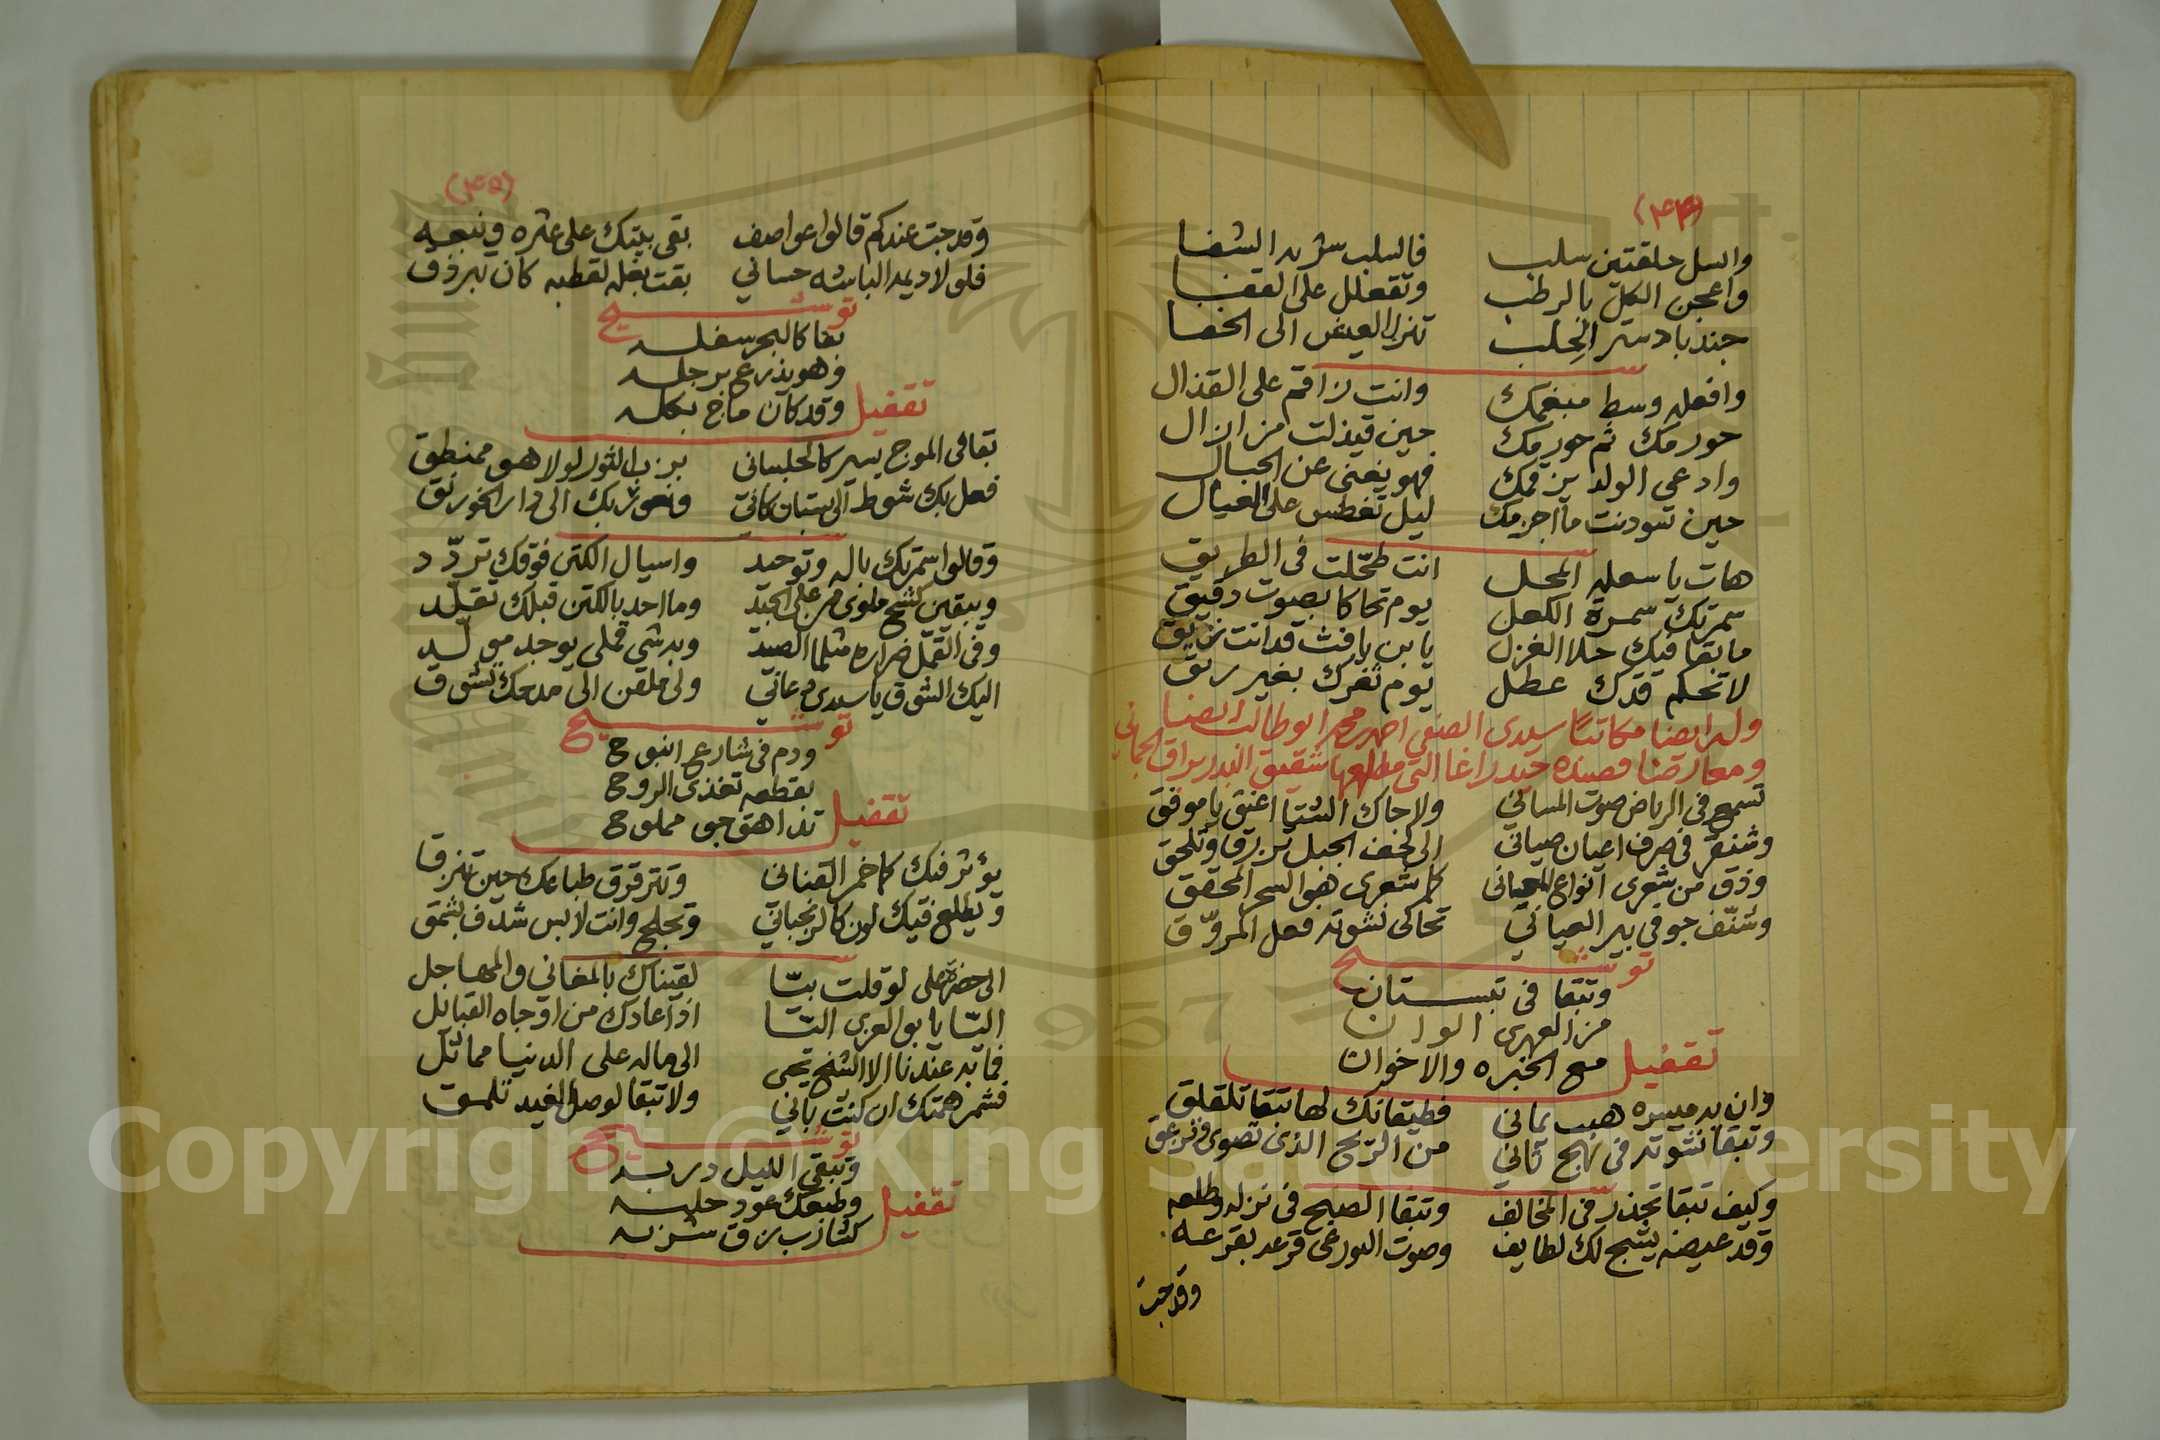 (٤٤)
واسل حلقتين سلب فالسلب شربه الشفا
واعجن الكل بالرطب وتقعلل على القفا
جندبادستر الحلب تنزل العيض الى الخفا
وافعله وسط مبغمك وانت زاقم على القذال
حورمك ثم حورمك حين قيذلت من ازال
وادعي الولد بن قمك فهو يغنى عن الجبال
حين تسودنت ما اجرمك ليل تغطس على العيال
هات يا سعله المحل انت طحلت في الطريق
سمرتك سمرة الكعل يوم تحاكا بصوت دقيق
ما بقا فيك حلا الغزل يا بن يافث قد انت
لا تحكم قدك عطل يوم تغرك بغير ريق
وله ايضا مكاتبًا سيدى الصفي احمد محمد ابو طالب ايضا
ومعارضا قصيده حيدر اغا التي مطلعها شقيق البدر براق الجماني
تسمع في الرياض صوت المساني ولا جاك الشتا اعنق يا موفق
وشنقر في صرف اعيان صياني الى كحف الجبل تبرق وتلحق
وذق من شعرى انواع المعاني كل شعرى هو السحر المحقق
وشنف جوفي بير العياني تحاكى نشوته فعل المروّق
توشيح
وتبقا في تبستان
من العهرى الوان
مع الخبره والاخوان
تقفيل
وان به ميسره هبب يماني فطيقانك لها تبقا تلقلق
وتبقا نشوته في نهج ثاني من الريح الذى تضوى
وكيف تبقا تجذر في المخالف وتبقا الصبح في نزله وطلعه
وقد عيصه يشج لك لطايف وصوت البورغي قرعه بقرعه
وقد جبت
(٤٥)
وقد جبت عندكم قالوا عواصف بقى بيتك على عثره ونبعيه
فلولا ديمه الباشه حساني بقت بغله لقطبه كان تبرذق
توشيح
بقا كالبحر سفله
وهو يذرع برجله
وقد كان ماج بكله
تقفيل
بقا في الموج يسير كالجلباني برزب الثور لولا هو ممنطق
فعل بك شوط الى بستان كاني وتعوش بك الى دار الخورنق
وقالوا سمرتك باله وتوحيد واسيال الكتن فوقك تردّد
ويبقين كشح ملوى من على الجيد وما احد بالكتن قبلك تقلّد
وفي القمل ضراره مثلما الصيد وبه شي قملى يوجد مولّد
اليك الشوق يا سيدى دعاني ولى ملقن الى مدعك تشوق
توشيح
ودم في شارع انبوح
بقطعه تغذى الروح
تذاهق جو مملوح
تقفيل
يؤثر فيك كاخمر القناني وتترقرق طباعك حين تنزق
ويطلع فيك لون كالزنجباني وتجلح وانت لابس شدف بشمق
الى حضرة على لو قلت بيتّا لقيناك بالمغاني والمهاجل
التّا يا بو العربي التّا اذا عادك من اوجاه القبائل
فما به عندنا الا الشيخ يحيى الى ماله على الدنيا مماثل
فشمر همتك ان كنت باني ولا تبقا لوصل الغيد تلمق
توشيح
وتبقى الليل دربه
وطبعك عود حلبه
كشارب زق شربه
تقفيل
Copyright © King Saud University
1957